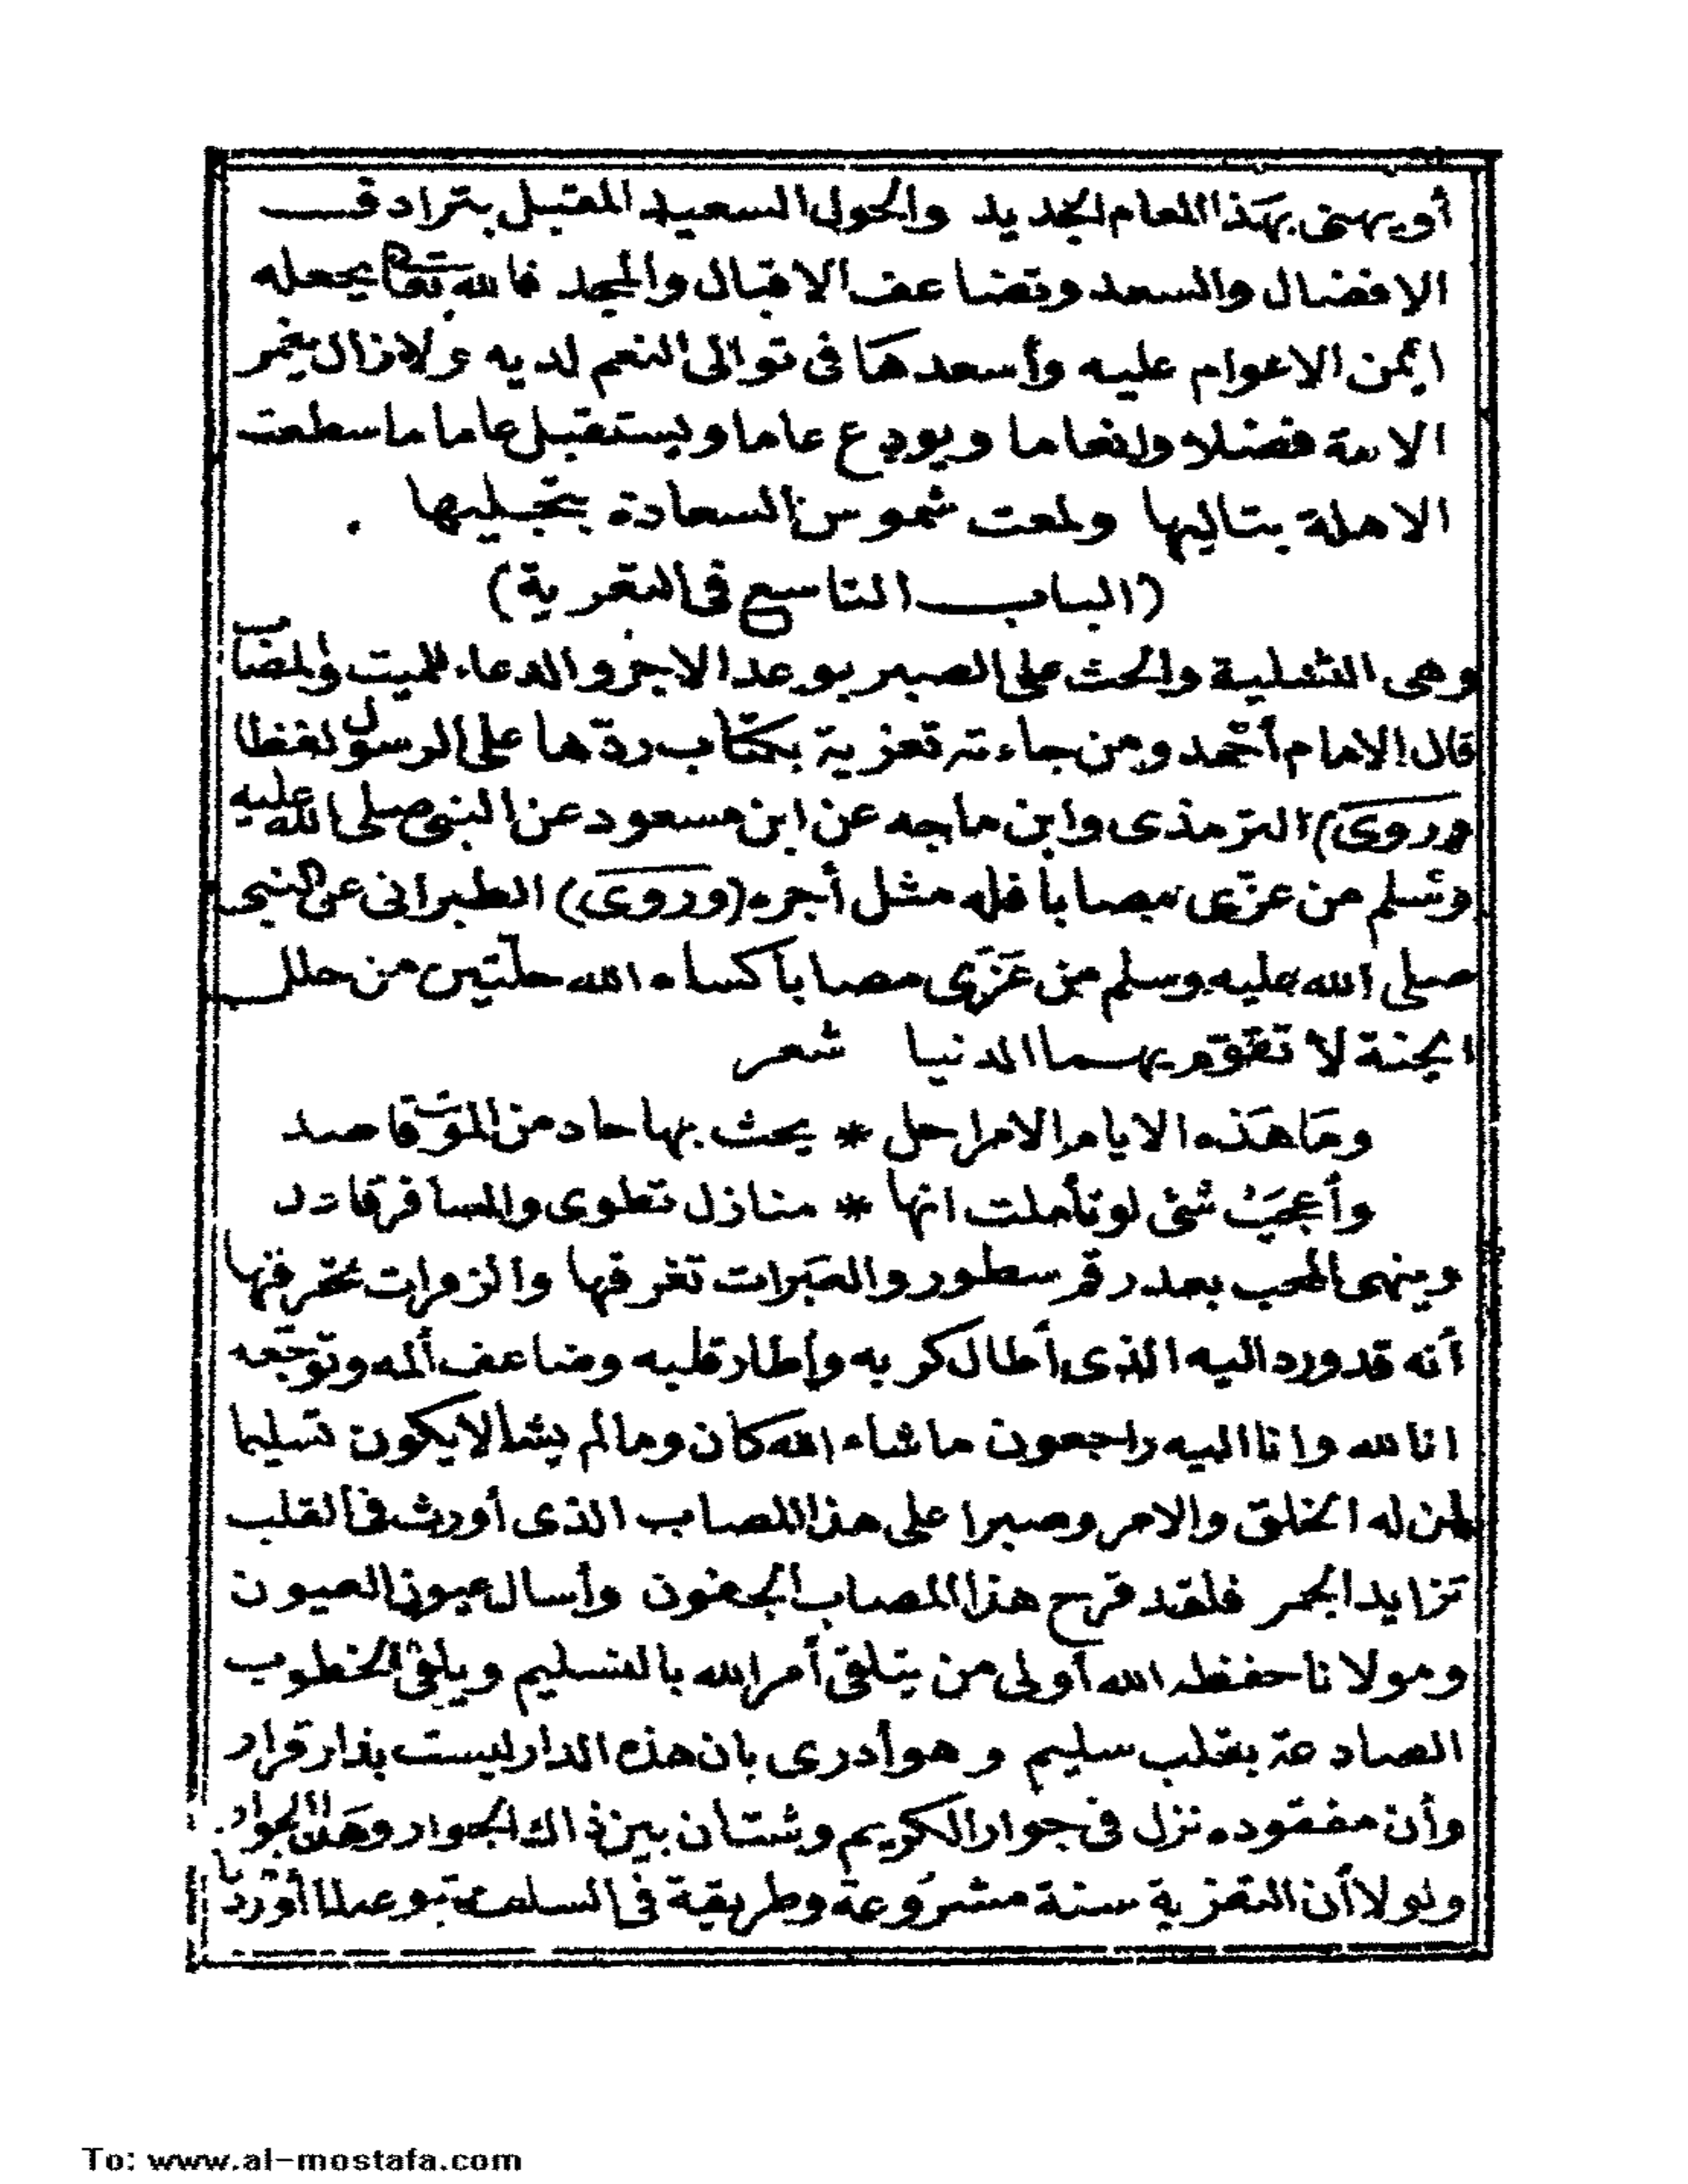 أو يهنى بهذا العام الجديد والحول السعيد المقبل بترادف
الافضال والسعد وتضاعف الاقبال والمجد فالله تعالى يجعله
ايمن الاعوام عليه وأسعدها فى توالى النعم لديه ولا زال يغمر
الامة فضلا وانعاما ويودع عاما ويستقبل عاما ما سطعت
الاهلة بتاليها ولمعت شموس السعادة بتجليها .
(الباب التاسع فى التعزية)
وهى التسلية والحث على الصبر بوعد الاجر والدعاء للميت والمصاب
قال الامام أحمد ومن جاءته تعزية بكتاب ردّها على الرسول لفظا
(وروى) الترمذى وابن ماجه عن ابن مسعود عن النبى صلى الله عليه
وسلم من عزّى مصابا فله مثل أجره (وروى) الطبرانى عن النبى
صلى الله عليه وسلم من عَزَّى مصابا كساه الله حلّتين من حلل
الجنة لا تقوّم بهما الدنيا شعر
وما هذه الايام الا مراحل * يحث بها حاد من الموت قاصد
وأعجب شئ لو تأملت انها * منازل تطوى والمسافر قاعد
وينهى المحب بعد رقم سطور والعبرات تغرقها والزفرات تحرقها
أنه قد ورد اليه الذى أطال كربه وأطار قلبه وضاعف ألمه وتوجّعه
انا لله وانا اليه راجعون ما شاء الله كان وما لم يشا لا يكون تسليما
لمن له الخلق والامر وصبرا على هذا المصاب الذى أورث فى القلب
تزايد الجمر فلقد قرح هذا المصاب الجفون وأسال عيون العيون
ومولانا حفظه الله أولى من يتلقى أمر الله بالتسليم ويلقى الخطوب
الصادعة بقلب سليم وهو أدرى بان هذه الدار ليست بدار قرار
وأن مفقوده نزل فى جوار الكريم وشتان بين ذاك الجوار وهذا الجوار
ولولا أن التعزية سنة مشروعة وطريقة فى السلف متبوعة لما أورد
To: www.al-mostafa.com